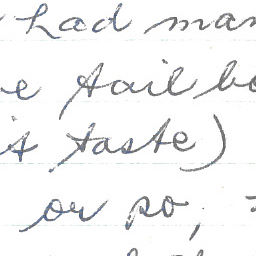 had man
e tail bo
it taste)
or so,